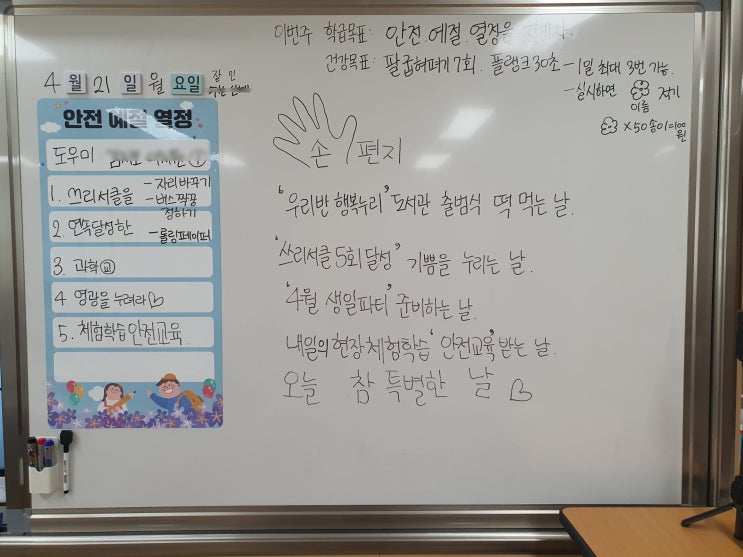 이번주 학급목표: 안전.예절.열정을 지키자.
건강목표: 팔굽혀펴기 7회. 플랭크 30초 - 1일 최대 3번 가능.
- 실시하면 적기
이름
×50송이=100원
4월 21일 월요일
안전 예절 열정
도우미
1. 쓰리서클을
- 자리바꾸기
- 버스짝꿍
정하기
2. 연속달성한
- 롤링페이퍼
3. 과학교
4 영광을 누려라
5. 체험학습안전교육.
손편지
"우리반 행복누리" 도서관 출범식 떡 먹는 날.
'쓰리서클 5회 달성' 기쁨을 누리는 날.
'4월 생일파티' 준비하는 날.
내일의 현장체험학습 '안전교육' 받는 날.
오늘 참 특별한 날